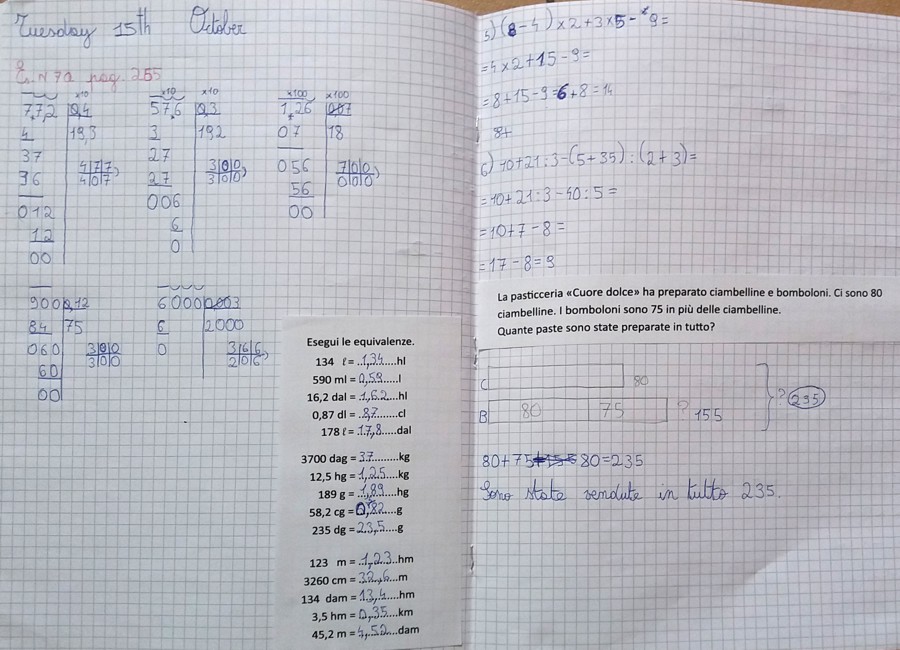 Tuesday 15th October
Es. N 7a pag. 255
×10 ×10 ×100
77,2 0,4 57,6 0,3 1,26 0,07
4 19,3 3 192 07 18
37 27
36 27 056
012 006 56
12 6 00
00 0
900 0,12 6000 0,003
84 75 6 2000
060 0
60
00
Esegui le equivalenze.
134 ℓ = 1,34 hl
590 ml = 0,59 l
16,2 dal = 1,62 hl
0,87 dl = 8,7 cl
178 ℓ = 17,8 dal
3700 dag = 37 kg
12,5 hg = 1,25 kg
189 g = 1,89 hg
58,2 cg = 0,582 g
235 dg = 23,5 g
123 m = 1,23 hm
3260 cm = 32,6 m
134 dam = 13,4 hm
3,5 hm = 0,35 km
45,2 m = 4,52 dam
5) (8-4)×2+3×5-9=
=4×2+15-9=
=8+15-9=6+8=14
8+
6) 10+21:3-(5+35):(2+3)=
=10+21:3-40:5=
=10+7-8=
=17-8=9
La pasticceria «Cuore dolce» ha preparato ciambelline e bomboloni. Ci sono 80
ciambelline. I bomboloni sono 75 in più delle ciambelline.
Quante paste sono state preparate in tutto?
C 80
B 80 75 ? 155
? 235
80+75+155 80=235
Sono state vendute in tutto 235.